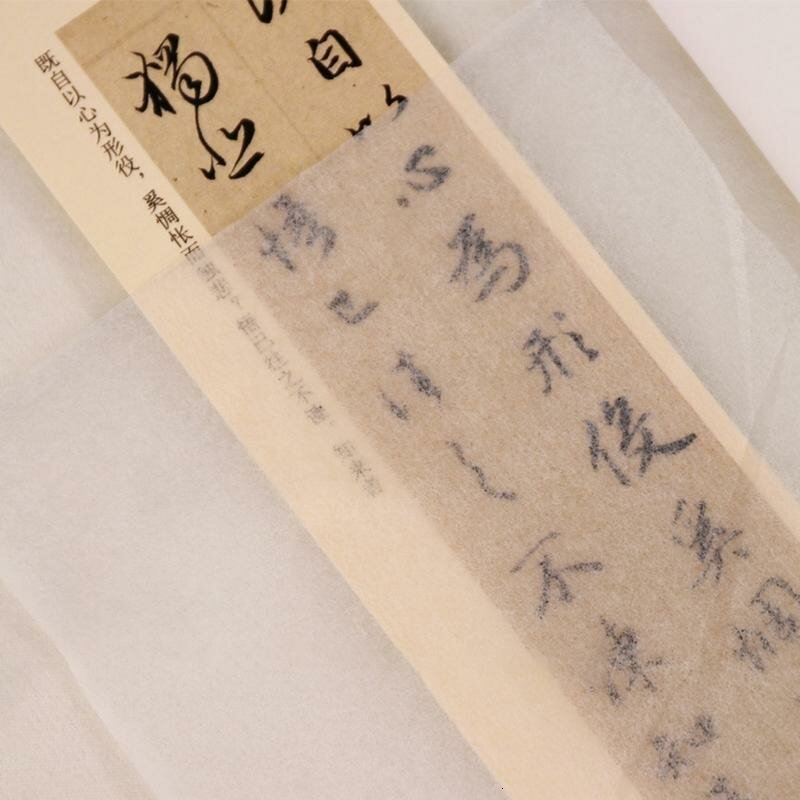 自以心為形役奚惆
獨悲悟已往之不諫知
既自以心为形役，奚惆怅而独悲？悟已往之不谏，知来者